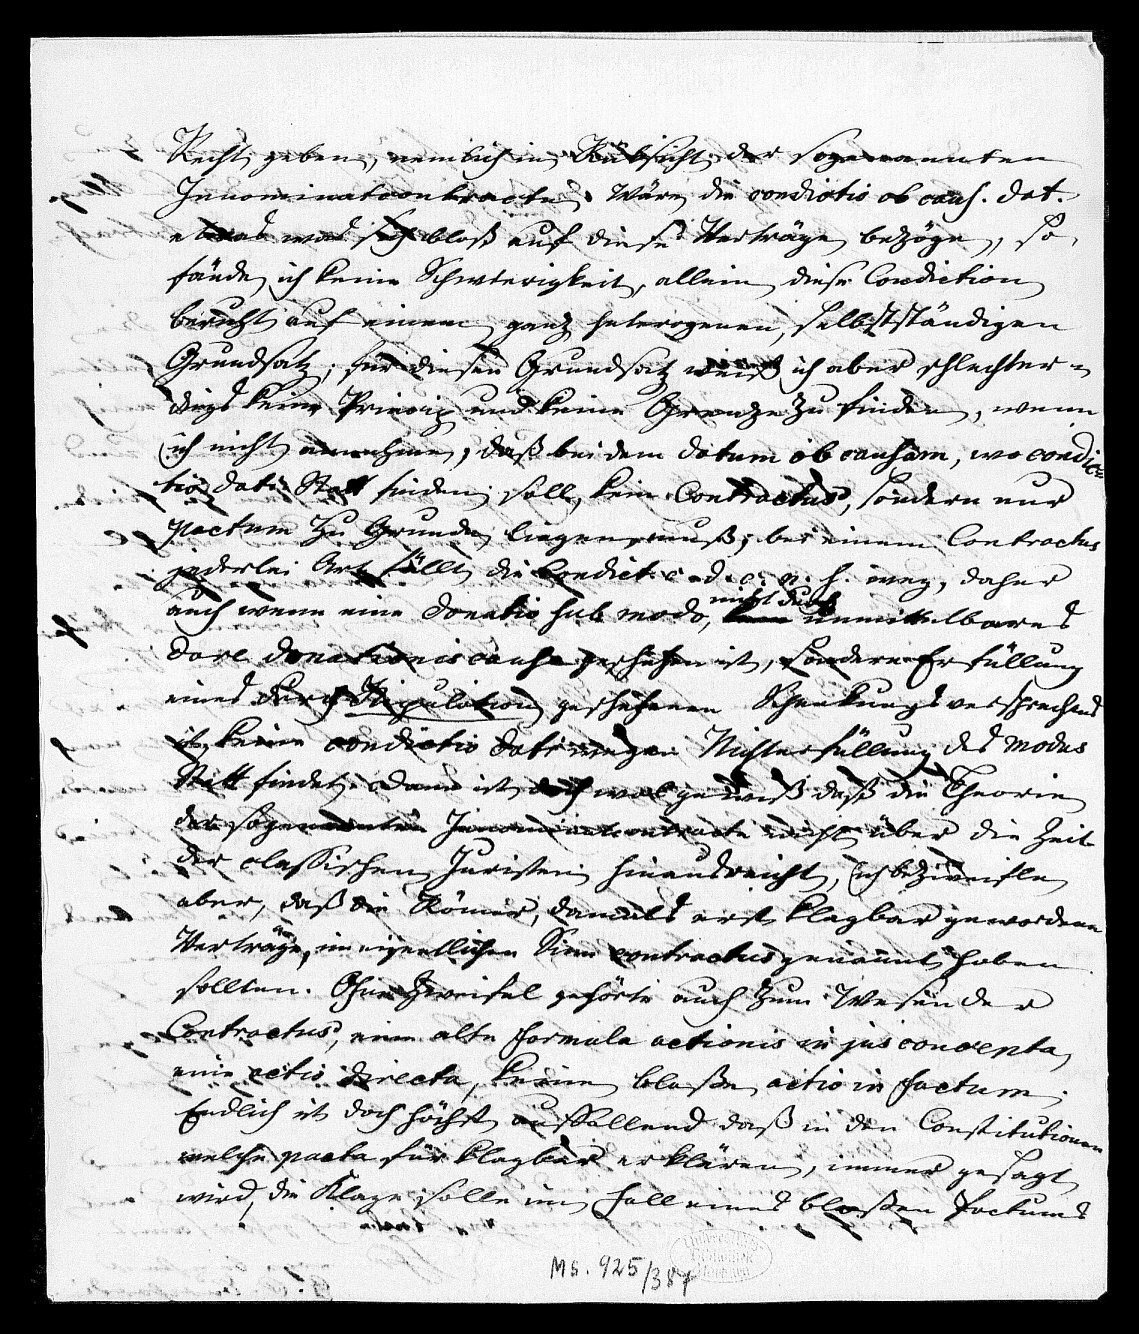 Recht geben, nemlich in Rücksicht der sogenannten
Innominatcontracte. Wäre die condictio ob caus. dat.
etwas was sich bloß auf diese Verträge bezöge, so
fände ich keine Schwierigkeit, allein diese Condiction
beruht auf einem ganz heterogenen, selbstständigen
Grundsatz; für diesen Grundsatz weiß ich aber schlechter-
dings kein Princip und keine Grenze zu finden, wenn
ich nicht annehme, daß bei dem datum ob causam, wo condic-
tio dati Statt finden soll, kein Contractus, sondern nur
pactum zu Grunde liegen muß; bei einem Contractus
jederlei Art fällt die Condict. c. d. c. n. s. weg, daher
auch wenn eine donatio sub modo, nicht durch unmittelbares
dare donationis causa geschehen ist, sondern Erfüllung
eines durch Stipulation geschehenen Schenkungsversprechens
ist, keine condictio dati wegen Nichterfüllung des modus
Statt findet. Dann ist doch wol gewiß daß die Theorie
der sogenannten Innominatcontracte nicht über die Zeit
der classischen Juristen hinausreicht, ich bezweifle
aber, daß die Römer, damals erst klagbar gewordene
Verträge, im eigentlichen Sinn contractus genannt haben
sollten. Ohne Zweifel gehörte auch zum Wesen der
Contractus, eine alte formula actionis in jus concepta,
eine actio directa, keine bloße actio in factum.
Endlich ist doch höchst auffallend daß in den Constitutionen
welche pacta für klagbar erklären, immer gesagt
wird, die Klage solle im Fall eines bloßen Factums
Ms. 925/387